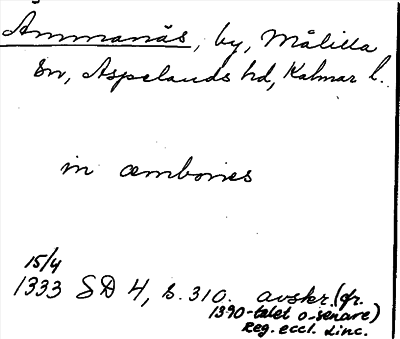 Åmmanäs, by, Målilla
sn, Aspelands hd, Kalmar l.
in æmbones
15/4
1333 SD 4, s. 310. avskr. (fr.
1390-talet o. senare)
Reg. eccl. Linc.